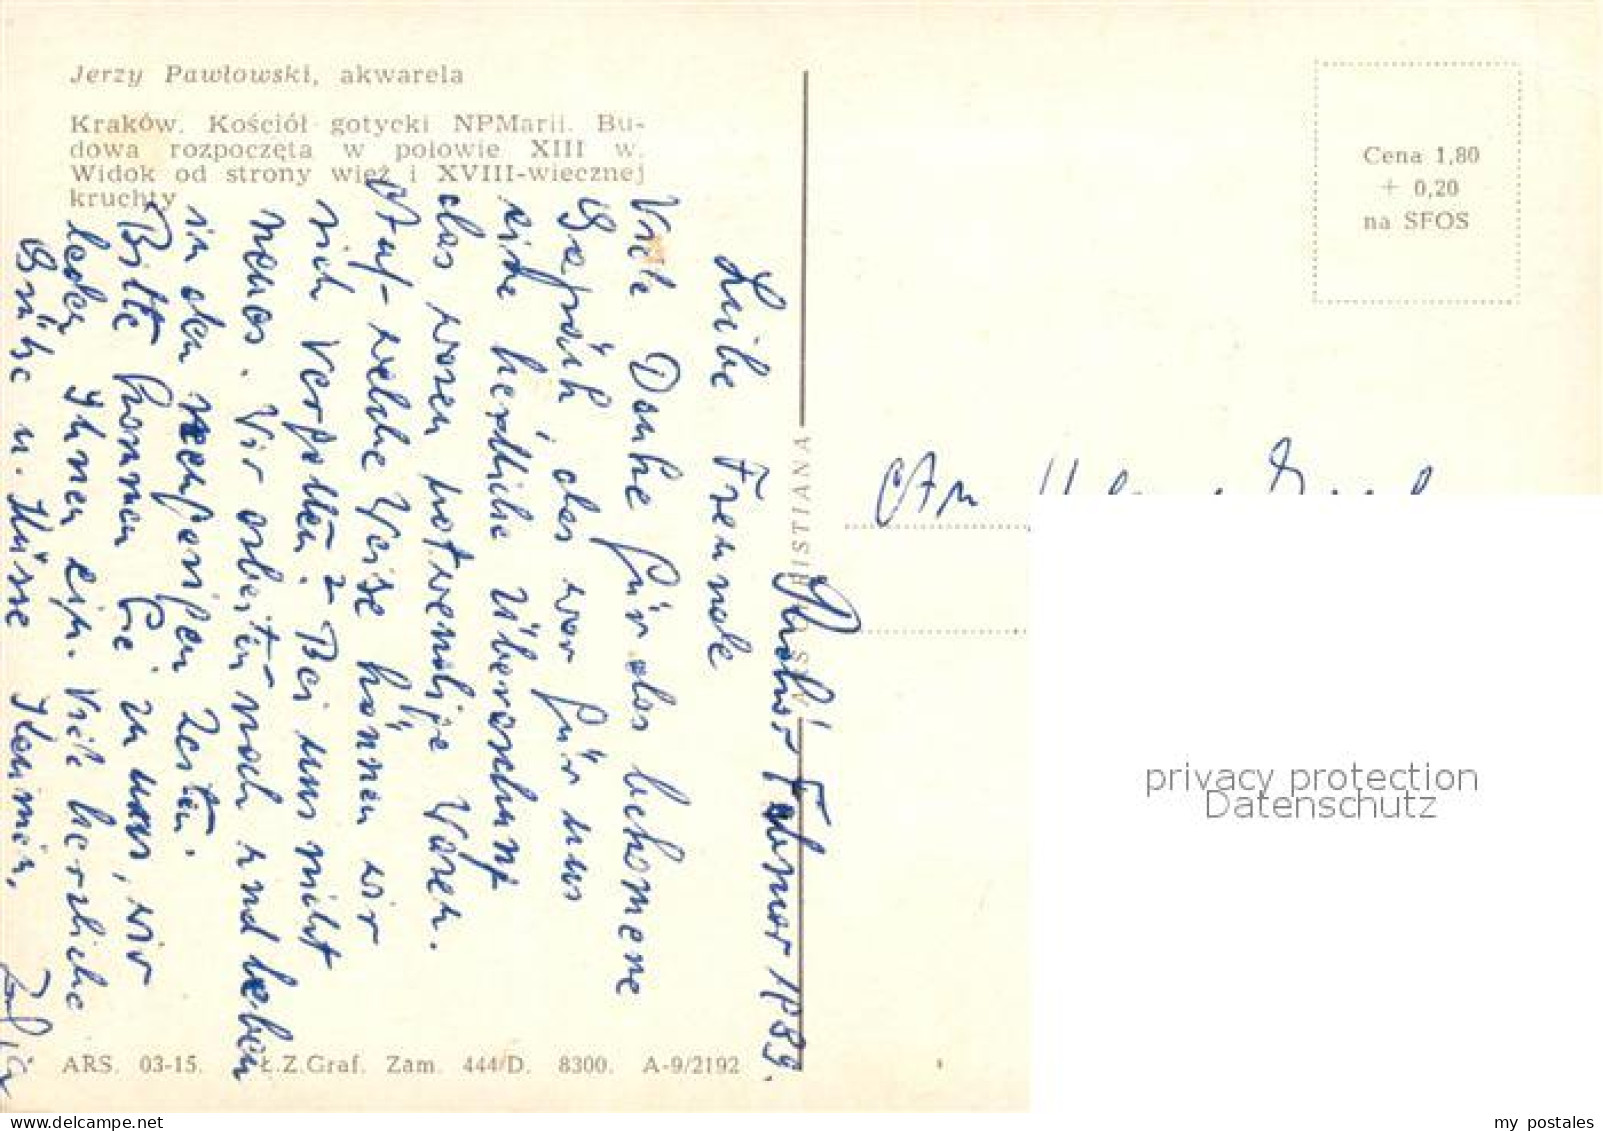 Jerzy Pawłowski, akwarela
Kraków. Kościół gotycki NPMarii. Bu-
dowa rozpoczęta w połowie XIII w.
Widok od strony wież i XVIII-wiecznej
kruchty
Cena 1,80
+ 0,20
na SFOS
Februar 1989.
Liebe Freunde
Viele Danke für das bekomene
Gepäck, das war für uns
eine herzliche Überaschung
das waren notwendige Waren.
Auf welche Weise können wir
sich vergelten? Bei uns nicht
neues. Wir arbeiten noch und leben
in den Zeiten.
Bitte kommen Sie zu uns, wir
laden Ihnen ein. Viele herzliche
Grüße u. Küsse
An
HRISTIANA
privacy protection
Datenschutz
ARS. 03-15. Ł.Z.Graf. Zam. 444/D. 8300. A-9/2192
my postales